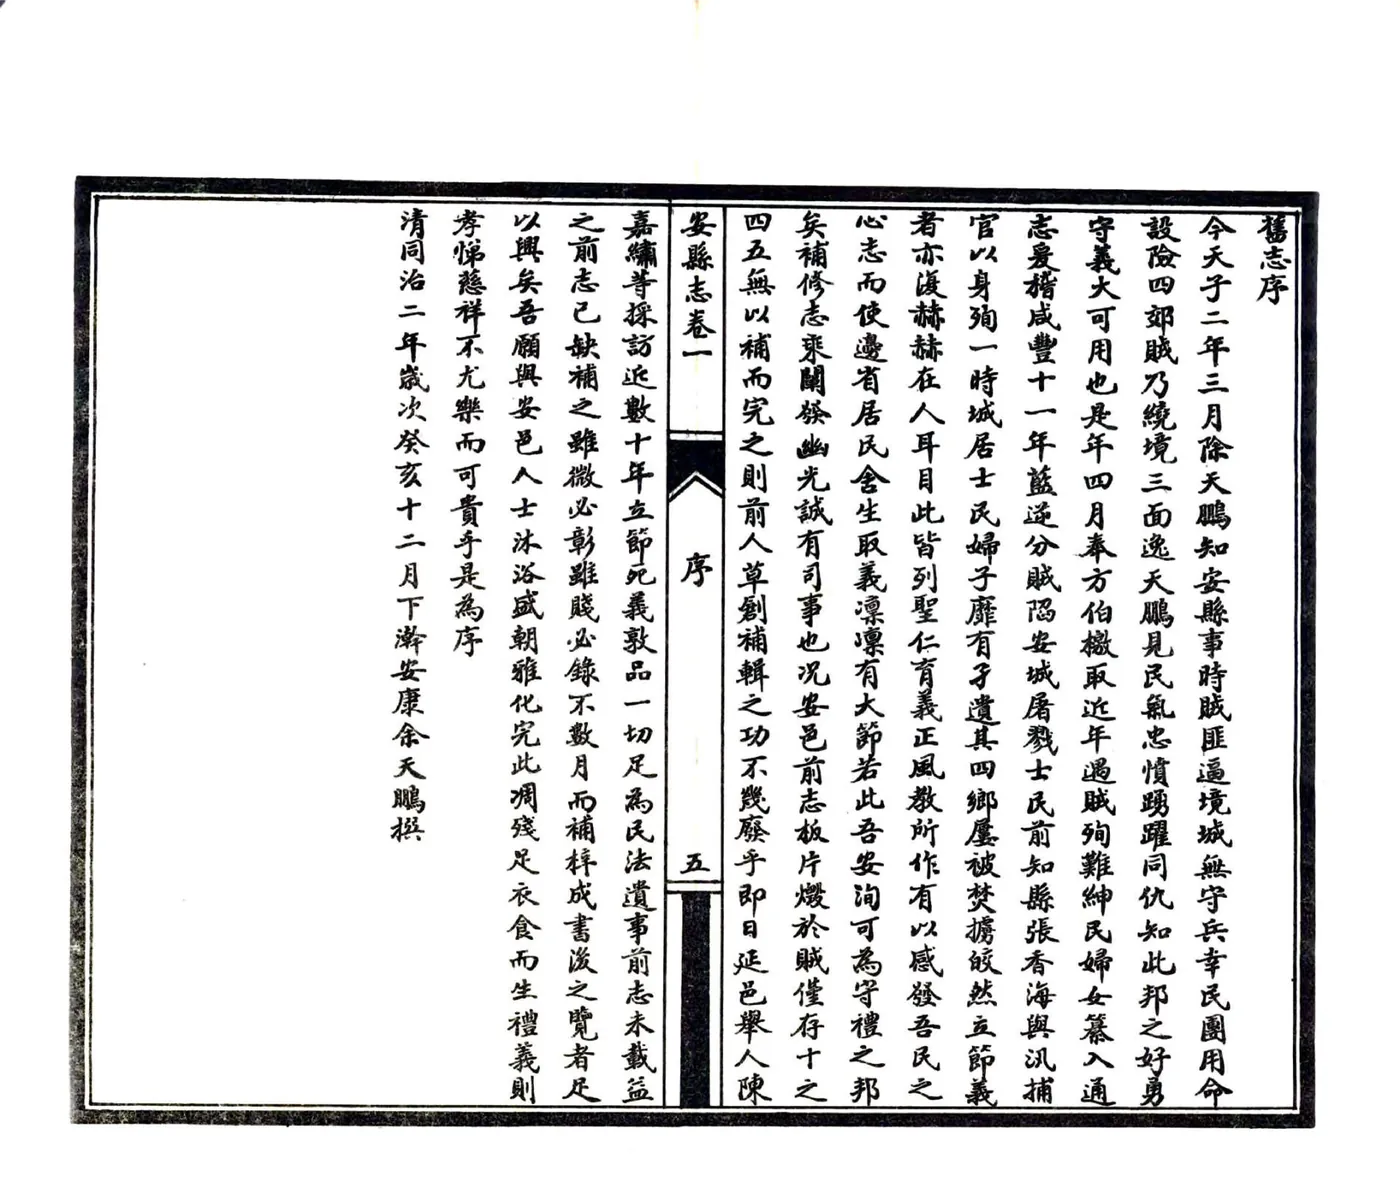 舊志序
今天子二年三月除天鵬知安縣事時賊匪逼境城無守兵幸民團用命
設險四郊賊乃繞境三面逸天鵬見民氣忠憤踴躍同仇知此邦之好勇
守義大可用也是年四月奉方伯檄取近年遇賊殉難紳民婦女纂入通
志爰稽咸豐十一年藍逆分賊陷安城屠戮士民前知縣張香海與汛捕
官以身殉一時城居士民婦子靡有孑遺其四鄉屢被焚擄皎然立節義
者亦復赫赫在人耳目此皆列聖仁育義正風教所作有以感發吾民之
心志而使邊省居民舍生取義凛凛有大節若此吾安洵可為守禮之邦
矣補修志乘闡發幽光誠有司事也况安邑前志板片燬於賊僅存十之
四五無以補而完之則前人草創補輯之功不幾廢乎即日延邑舉人陳
安縣志卷一
序
五
嘉繡等採訪近數十年立節死義敦品一切足為民法遺事前志未載益
之前志已缺補之雖微必彰雖賤必錄不數月而補梓成書後之覽者足
以興矣吾願與安邑人士沐浴盛朝雅化完此凋殘足衣食而生禮義則
孝悌慈祥不尤樂而可貴乎是為序
清同治二年歲次癸亥十二月下澣安康余天鵬撰